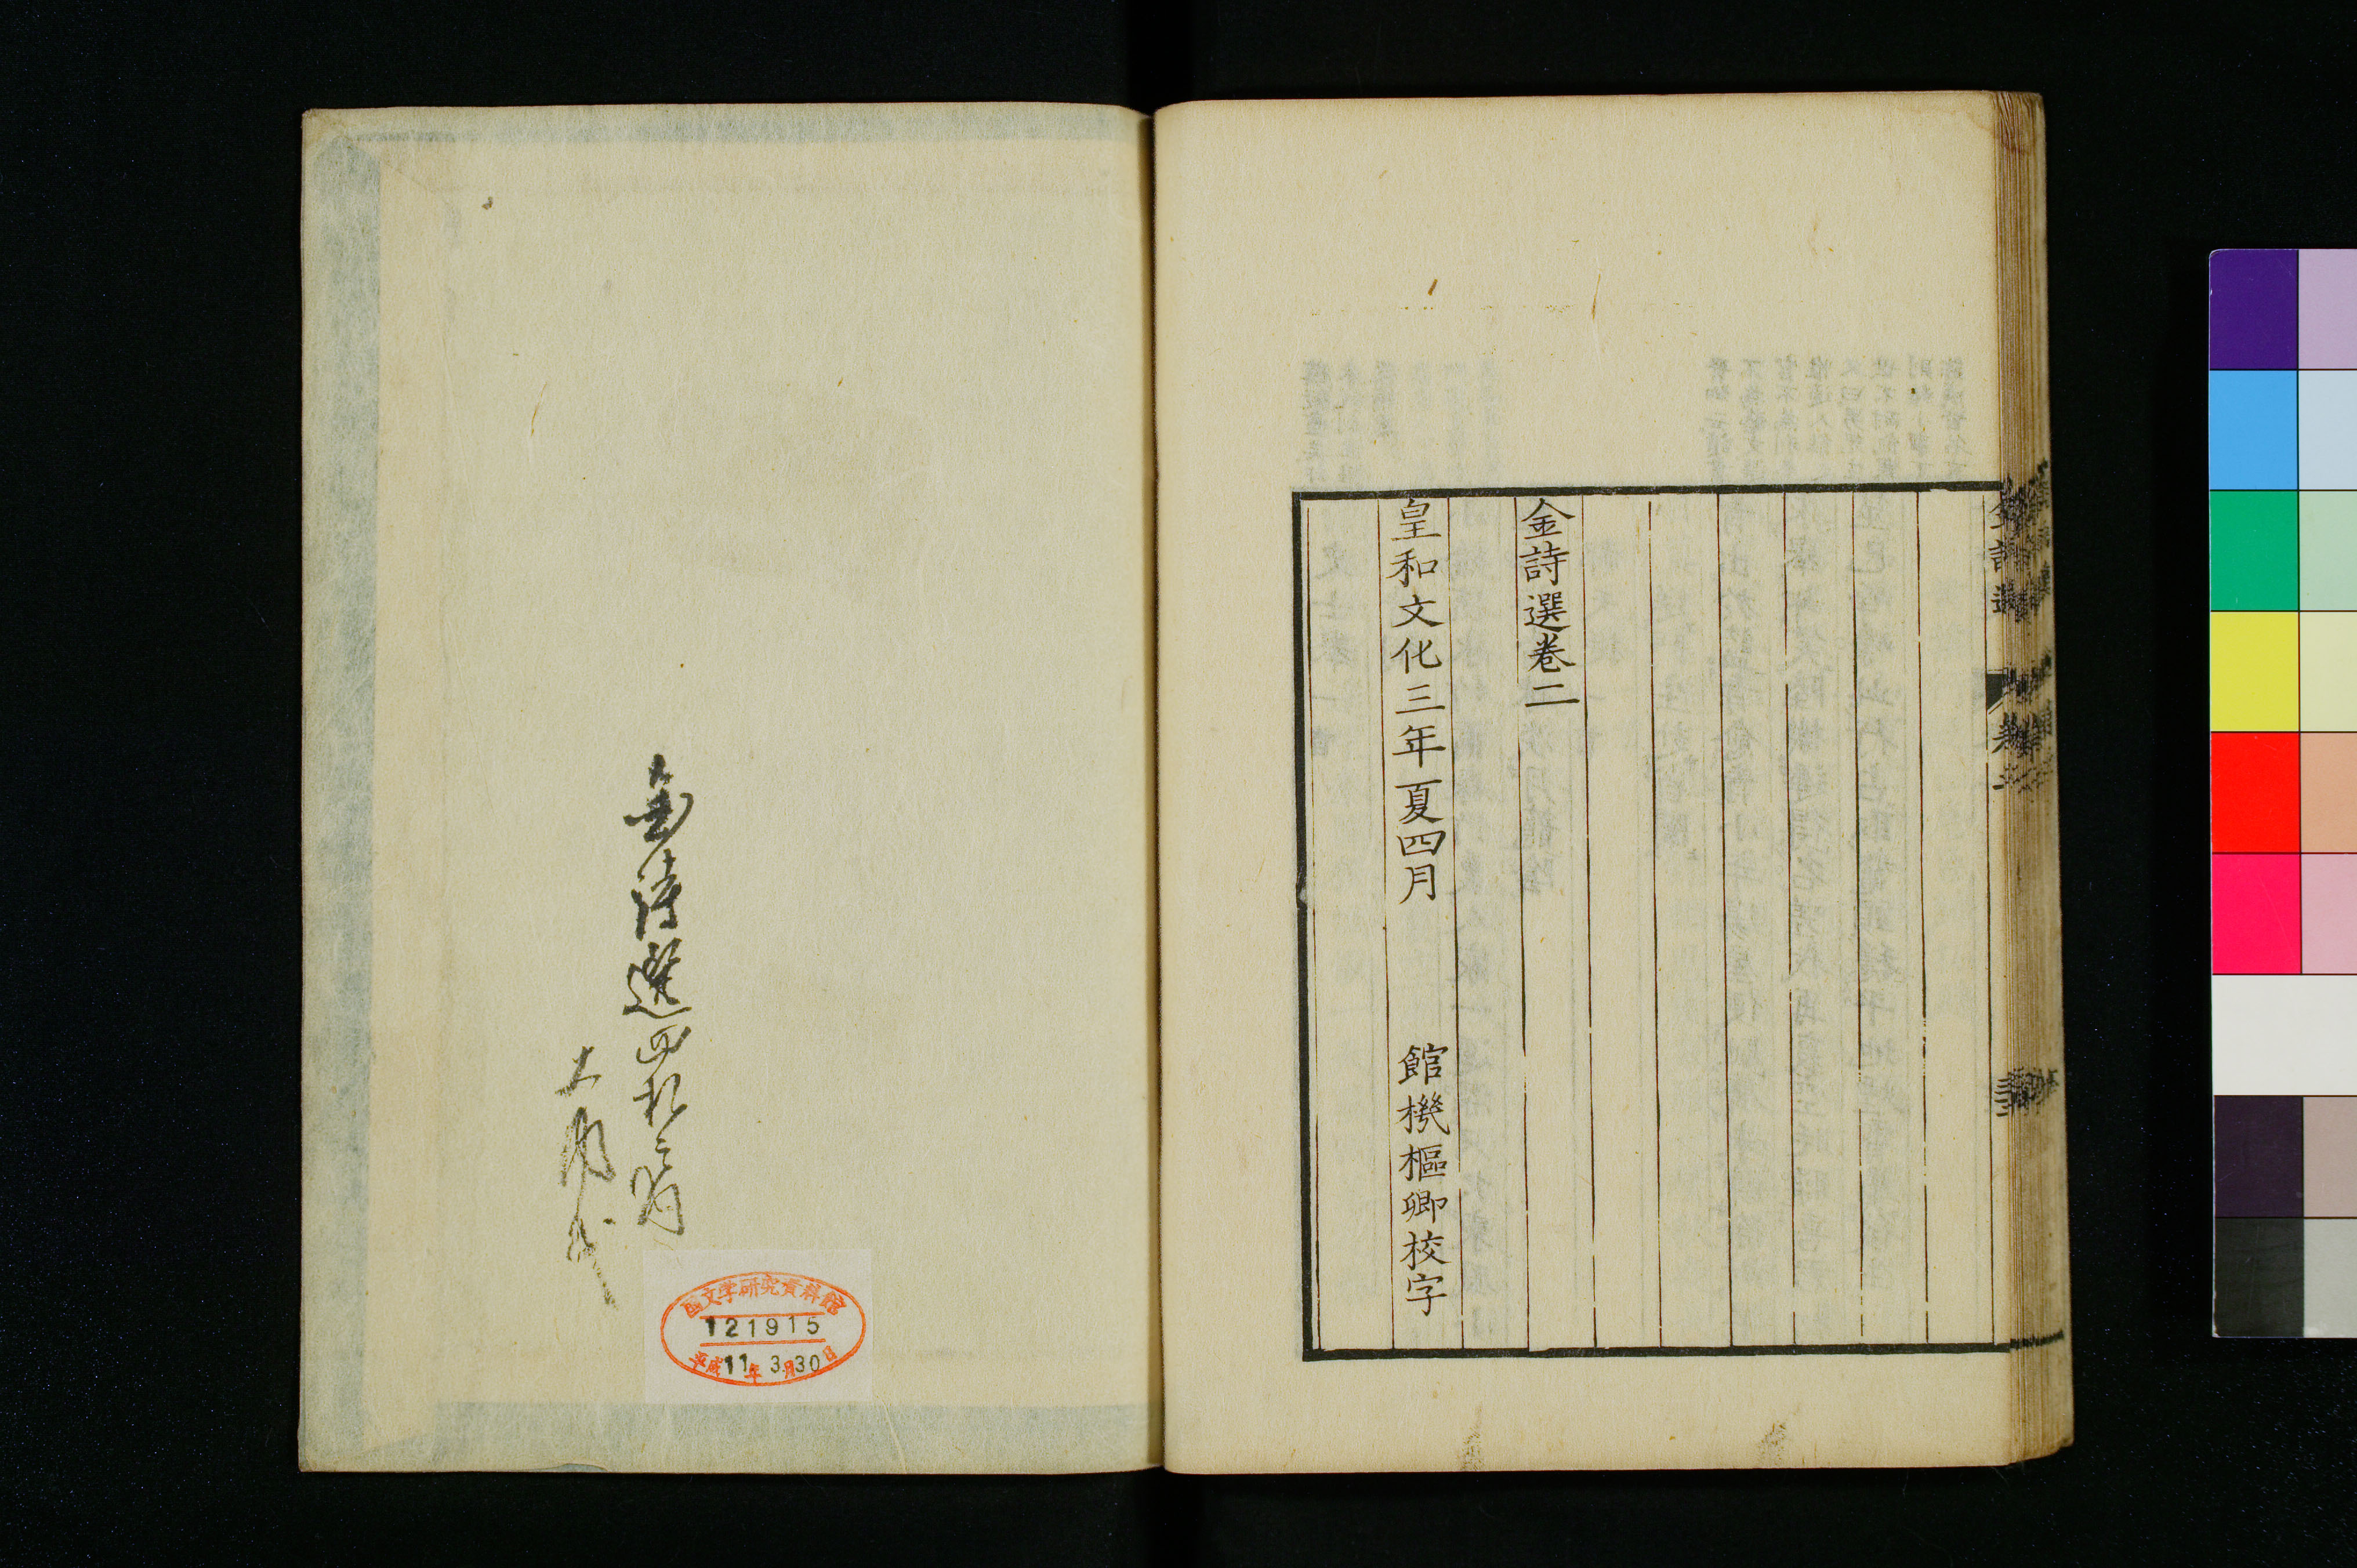 金詩選卷二
皇和文化三年夏四月　館機樞卿校字
金詩選四札之內
國文学研究資料館
121915
平成11年3月30日